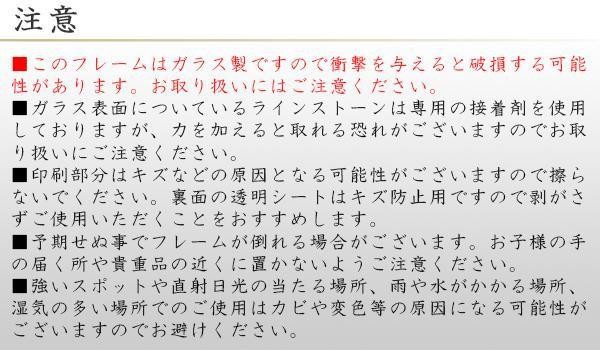 注意
■このフレームはガラス製ですので衝撃を与えると破損する可能
性があります。お取り扱いにはご注意ください。
■ガラス表面についているラインストーンは専用の接着剤を使用
しておりますが、力を加えると取れる恐れがございますのでお取
り扱いにご注意ください。
■印刷部分はキズなどの原因となる可能性がございますので擦ら
ないでください。裏面の透明シートはキズ防止用ですので剥がさ
ずご使用いただくことをおすすめします。
■予期せぬ事でフレームが倒れる場合がございます。お子様の手
の届く所や貴重品の近くに置かないようご注意ください。
■強いスポットや直射日光の当たる場所、雨や水がかかる場所、
湿気の多い場所でのご使用はカビや変色等の原因になる可能性が
ございますのでお避けください。